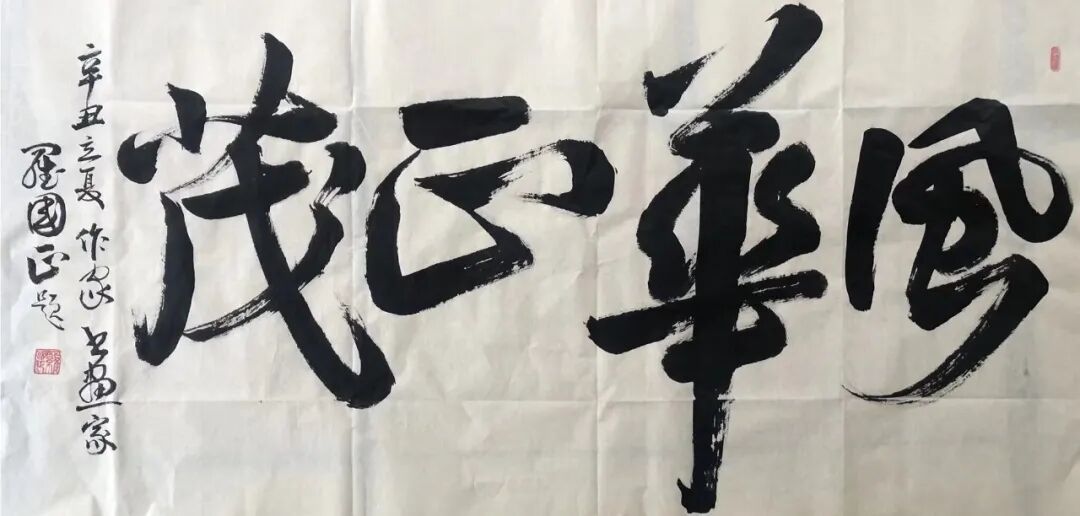 風華正茂
辛丑立夏作家書畫家
羅國正題